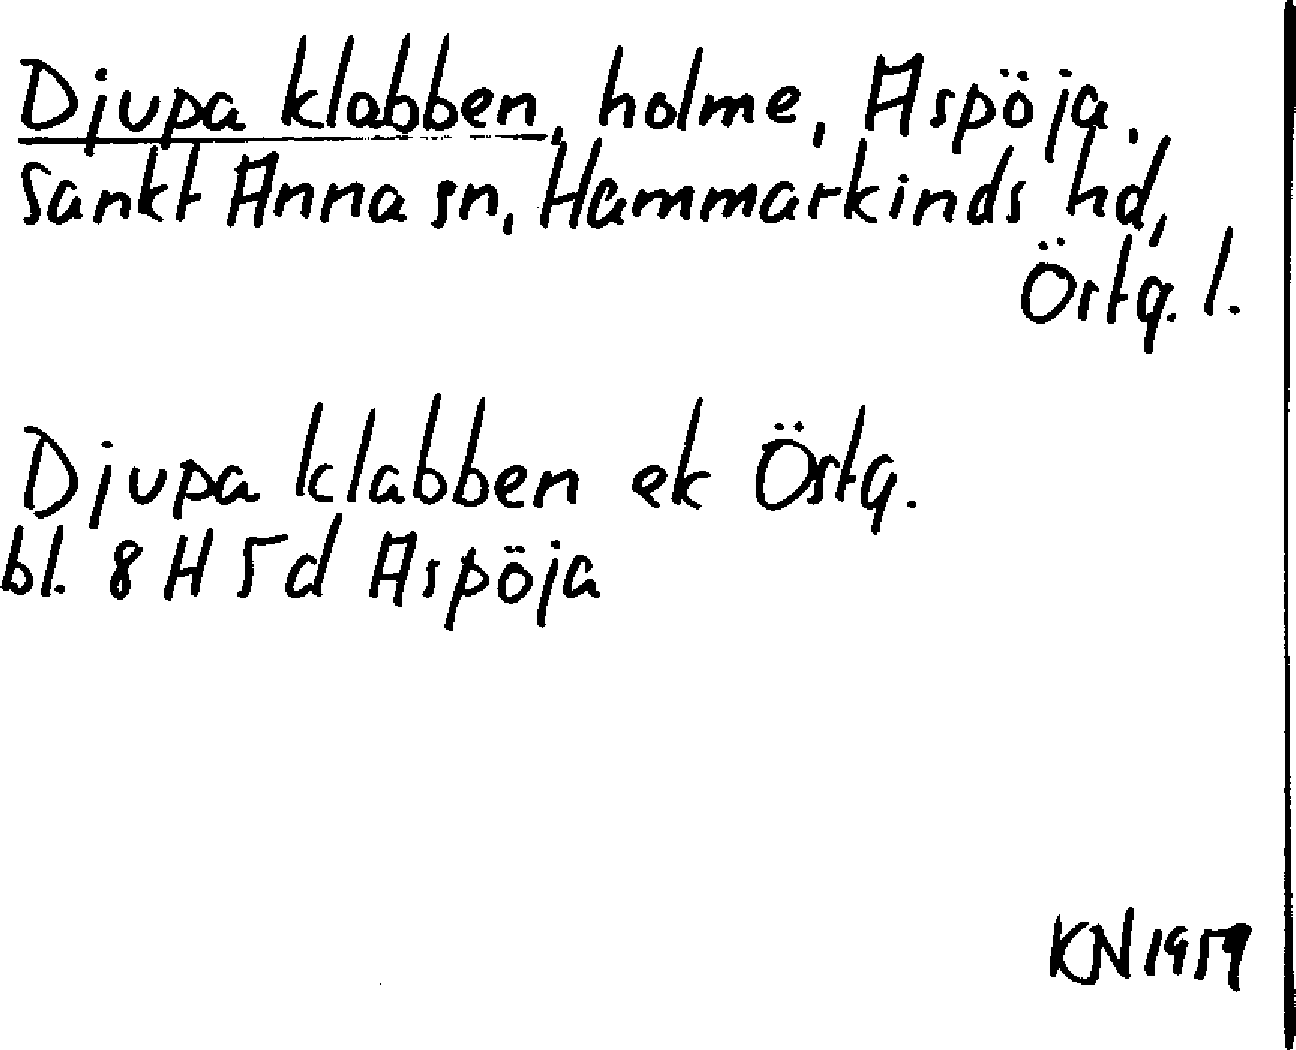 Djupa klabben, holme, Aspöja.
Sankt Anna sn, Hammarkinds hd,
Östg. l.
Djupa klabben ek Östg.
bl. 8 H 5d Aspöja
KN 1959